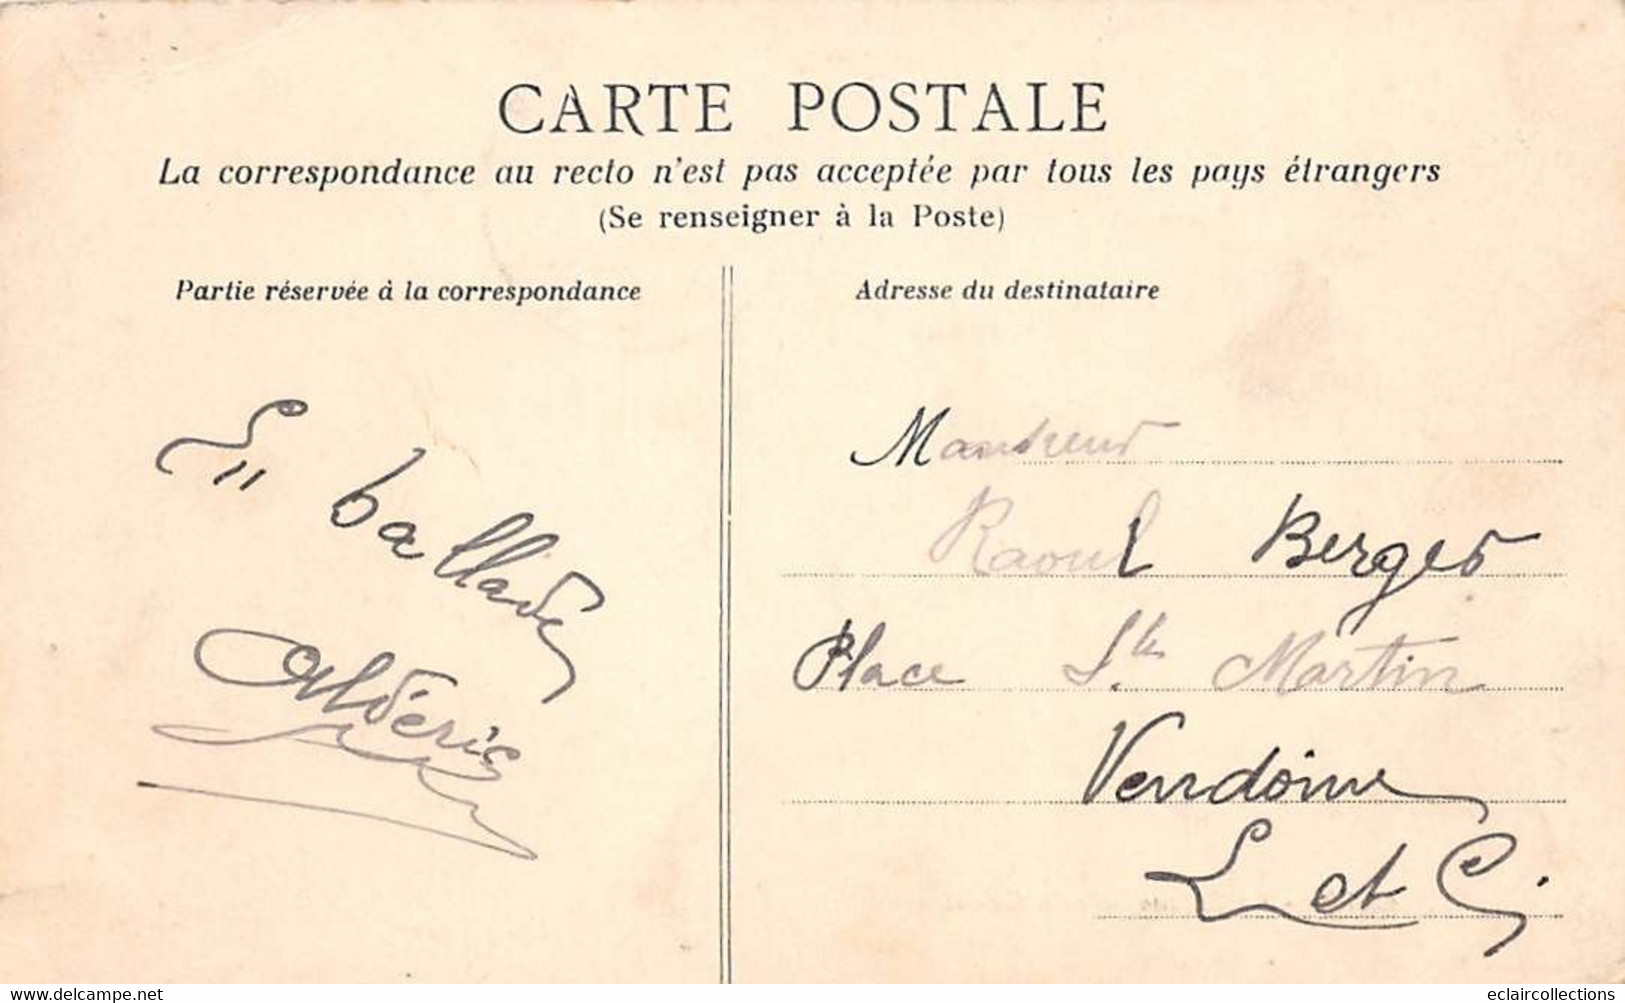 CARTE POSTALE
La correspondance au recto n'est pas acceptée par tous les pays étrangers
(Se renseigner à la Poste)
Partie réservée à la correspondance
En ballade
Aldéric
Adresse du destinataire
Monsieur
Raoul Berger
Place St. Martin
Vendôme
L et C.
www.delcampe.net
eclaircollections